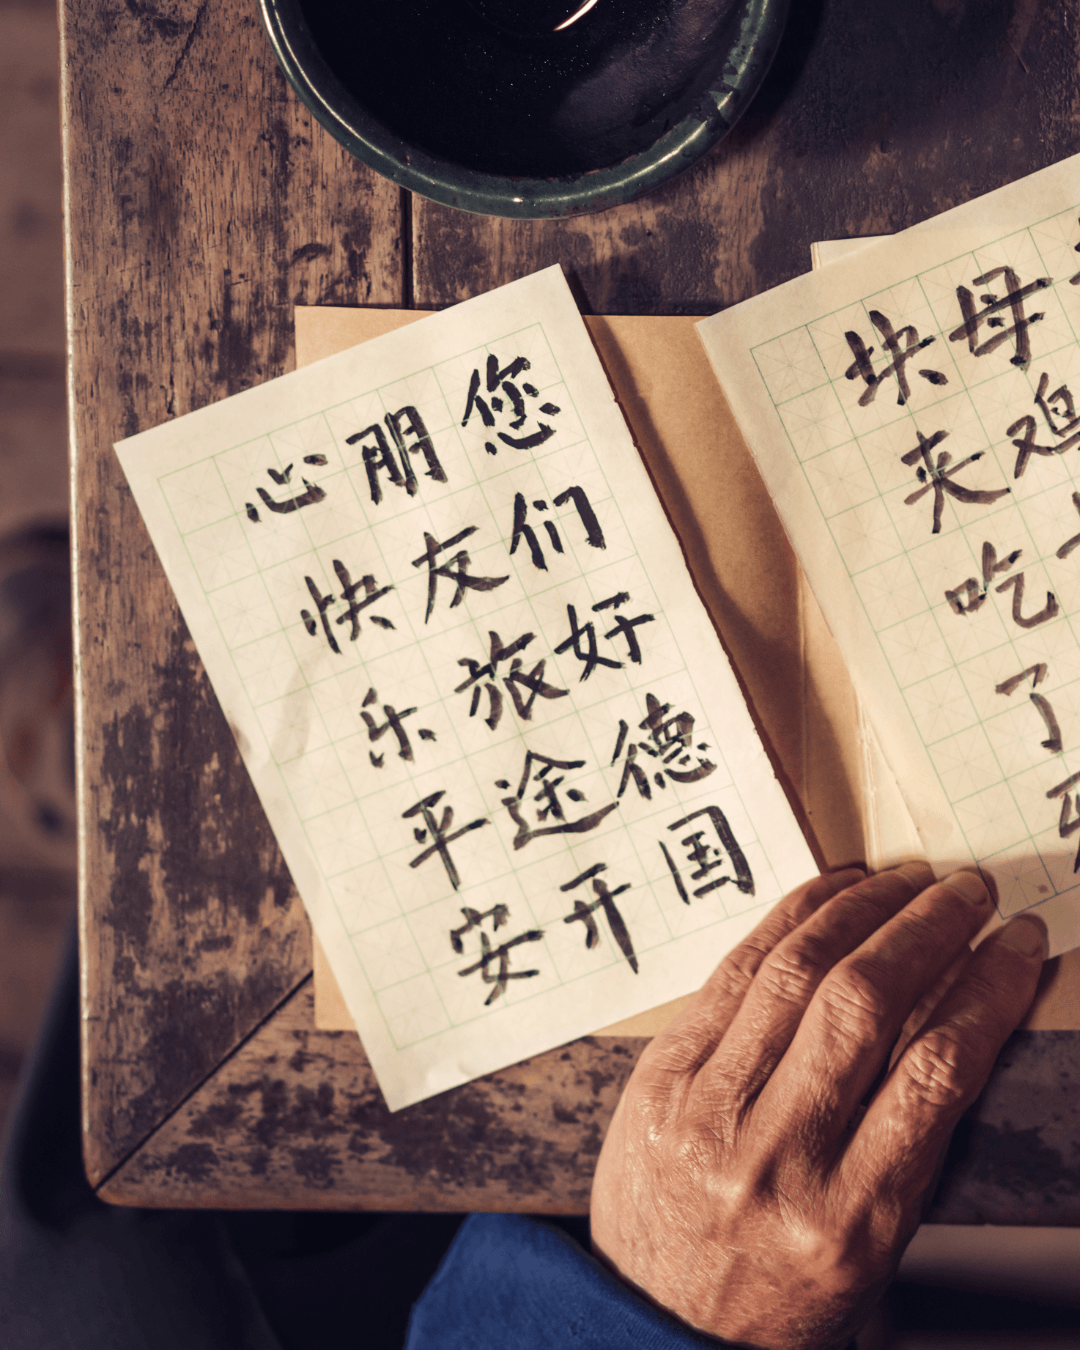 母鸡
块夹吃了
您们好德国
朋友旅途开
心快乐平安